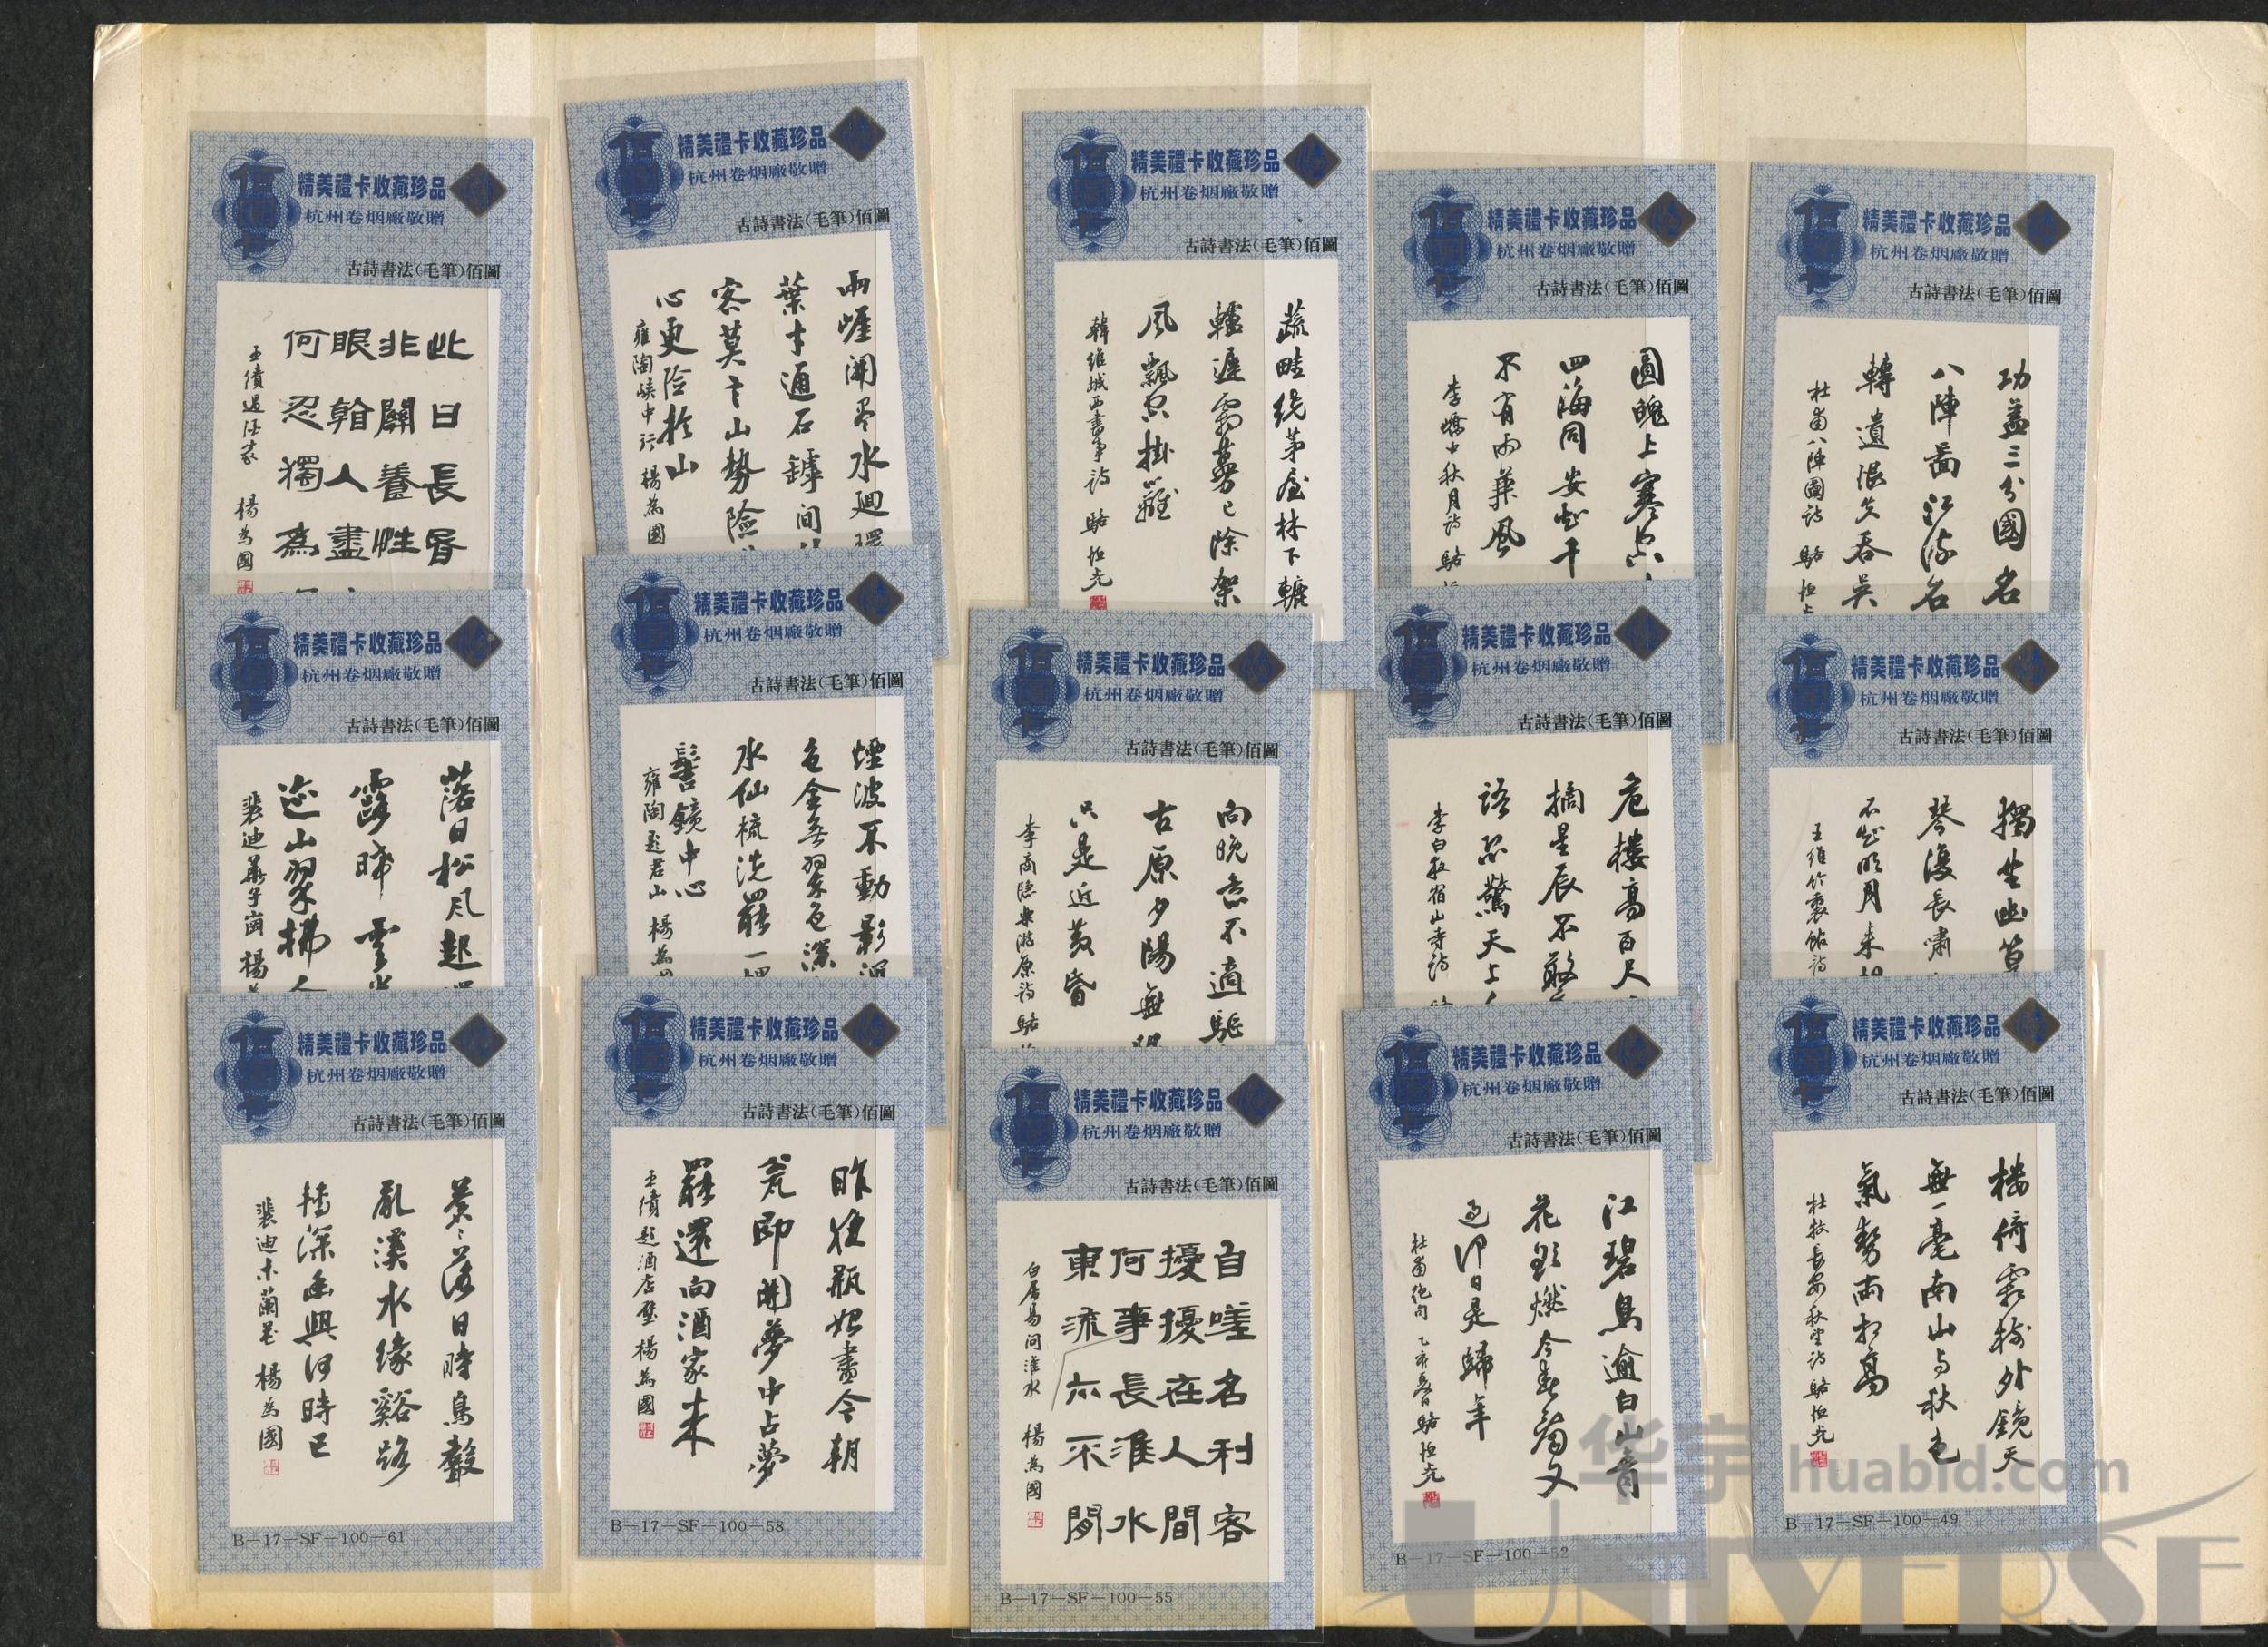 精美禮卡收藏珍品
杭州卷烟廠敬贈
古詩書法(毛筆)佰圖
此日長昏
非關養性
眼看人盡
何忍獨為
王績過酒家 楊為國
精美禮卡收藏珍品
杭州卷烟廠敬贈
古詩書法(毛筆)佰圖
兩崖開盡水迴環
葉才通石罅間
客莫言山勢險
心更险於山
雍陶峽中行 楊為國
精美禮卡收藏珍品
杭州卷烟廠敬贈
古詩書法(毛筆)佰圖
蔬畦绕茅屋林下轆
轤遲霜蔓已除架
風飄只掛籬
韓維城西書事詩 駱恒光
精美禮卡收藏珍品
杭州卷烟廠敬贈
古詩書法(毛筆)佰圖
圓魄上寒空
四海同安知千
不有雨兼風
李嶠中秋月詩 駱恒
精美禮卡收藏珍品
杭州卷烟廠敬贈
古詩書法(毛筆)佰圖
功蓋三分國名
八陣圖江流石
轉遺恨失吞吴
杜甫八陣圖詩 駱恒光
精美禮卡收藏珍品
杭州卷烟廠敬贈
古詩書法(毛筆)佰圖
落日松风起還
露晞雲光
迹山翠拂人
裴迪華子崗 楊為
精美禮卡收藏珍品
杭州卷烟廠敬贈
古詩書法(毛筆)佰圖
煙波不動影沉
色全無翠色深
水仙梳洗罷一螺
髻鏡中心
雍陶題君山 楊為國
精美禮卡收藏珍品
杭州卷烟廠敬贈
古詩書法(毛筆)佰圖
向晚意不適驅
古原夕陽無限
只是近黄昏
李商隐樂遊原詩 駱
精美禮卡收藏珍品
杭州卷烟廠敬贈
古詩書法(毛筆)佰圖
危樓高百尺
摘星辰不敢
語恐驚天上人
李白夜宿山寺詩 駱
精美禮卡收藏珍品
杭州卷烟廠敬贈
古詩書法(毛筆)佰圖
獨坐幽篁
琴復長嘯
不知明月来相
王維竹裏館詩
精美禮卡收藏珍品
杭州卷烟廠敬贈
古詩書法(毛筆)佰圖
蒼蒼落日時鳥聲
亂溪水缘谿路
轉深幽興何時已
裴迪木蘭柴 楊為國
B-17-SF-100-61
精美禮卡收藏珍品
杭州卷烟廠敬贈
古詩書法(毛筆)佰圖
昨夜瓶始盡今朝
甕即開夢中占夢
罷還向酒家来
王績題酒店壁 楊為國
B-17-SF-100-58
精美禮卡收藏珍品
杭州卷烟廠敬贈
古詩書法(毛筆)佰圖
自嗟名利客
擾擾在人間
何事長淮水
東流亦不閒
白居易问淮水 楊為國
B-17-SF-100-55
精美禮卡收藏珍品
杭州卷烟廠敬贈
古詩書法(毛筆)佰圖
江碧鳥逾白山青
花欲燃今春看又
過何日是歸年
杜甫绝句 乙亥 駱恒光
B-17-SF-100-52
精美禮卡收藏珍品
杭州卷烟廠敬贈
古詩書法(毛筆)佰圖
樓倚霜樹外鏡天
無一毫南山与秋色
氣勢兩相高
杜牧長安秋望詩 駱恒光
B-17-SF-100-49
华宇 huabid.com
UNIVERSE